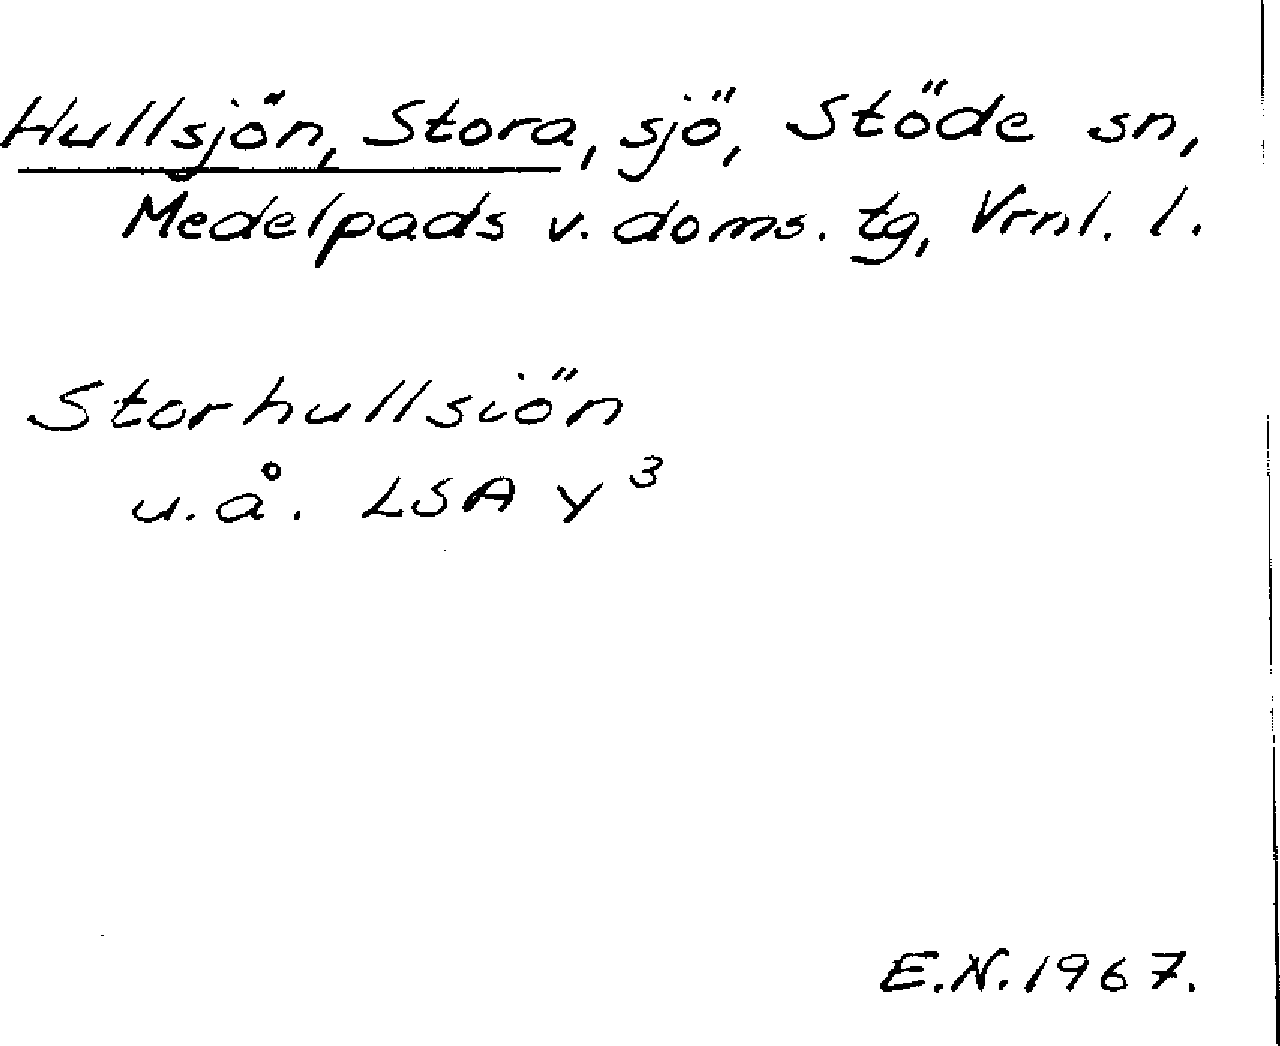 Hullsjön, Stora, sjö, Stöde sn,
Medelpads v. doms. tg, Vrnl. l.
Storhullsiön
u.å. LSA Y³
E.N. 1967.